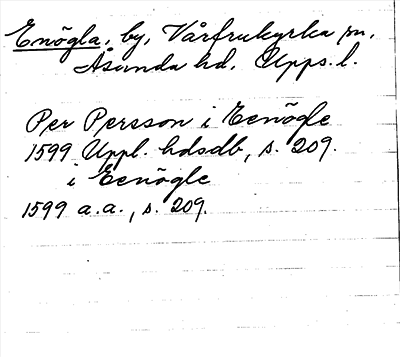 Enögla, by, Vårfrukyrka sn,
Åsunda hd, Upps. l.
Per Persson i Eenögle
1599 Uppl. hdsdb, s. 209.
i Eenögle
1599 a.a., s. 209.